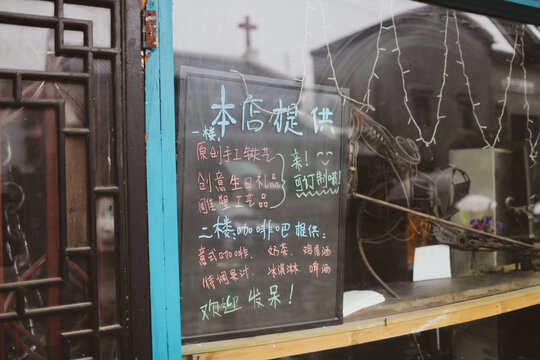 本店提供
一楼:
原创手工铁艺
创意生日礼品
雕塑工艺品
亲!
可订制哦!
二楼:咖啡吧提供:
意式咖啡. 奶茶. 鸡尾酒
特调果汁. 冰淇淋 啤酒
欢迎发呆!